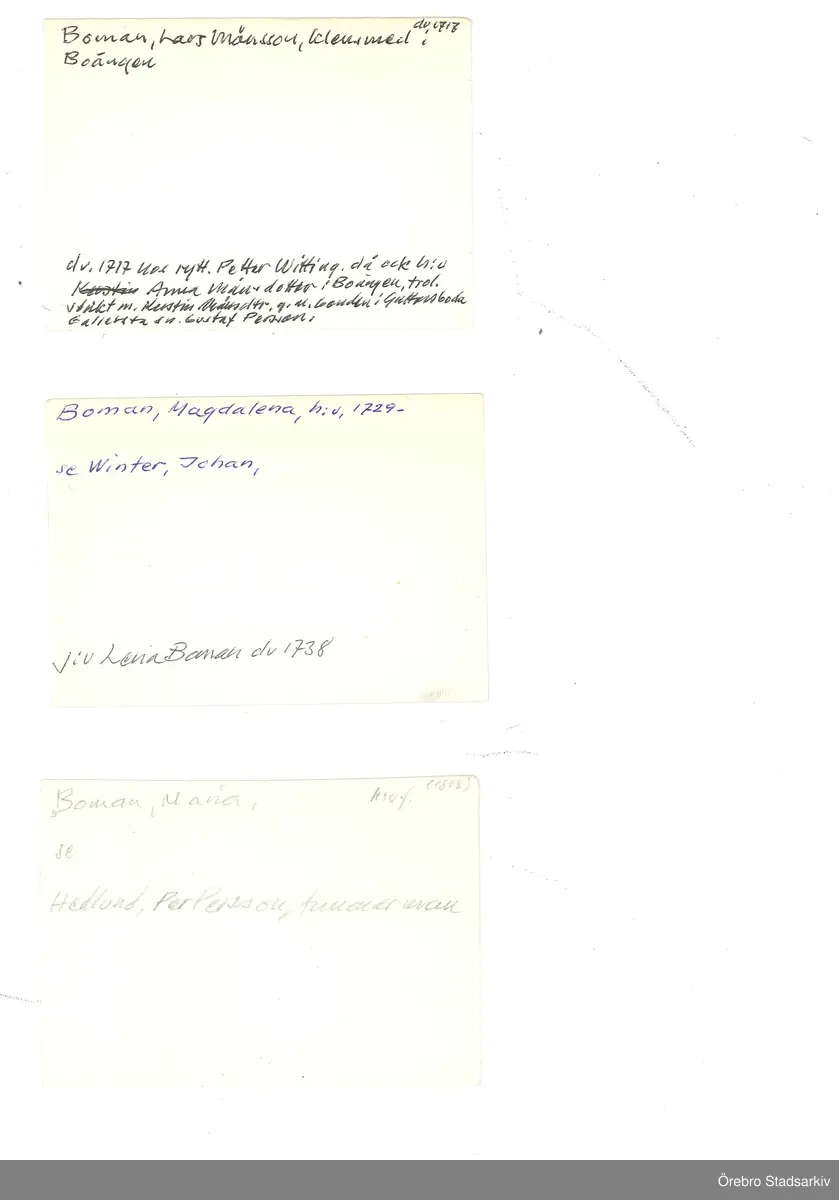 dv 1717
Boman, Lars Månsson, klensmed i
Boängen
dv. 1717 hos rytt. Petter Witting. då ock h:u
Kerstin Anna Månsdotter i Boängen, trol.
släkt m. Kerstin Månsdtr. g. m. bonden i Guttersboda
sn. Gustaf Persson.
Boman, Magdalena, h:u, 1729-
se Winter, Johan,
j:v Lena Boman dv 1738
Boman, Maria,
se
Hedlund, Per Persson, timmerman
Örebro Stadsarkiv